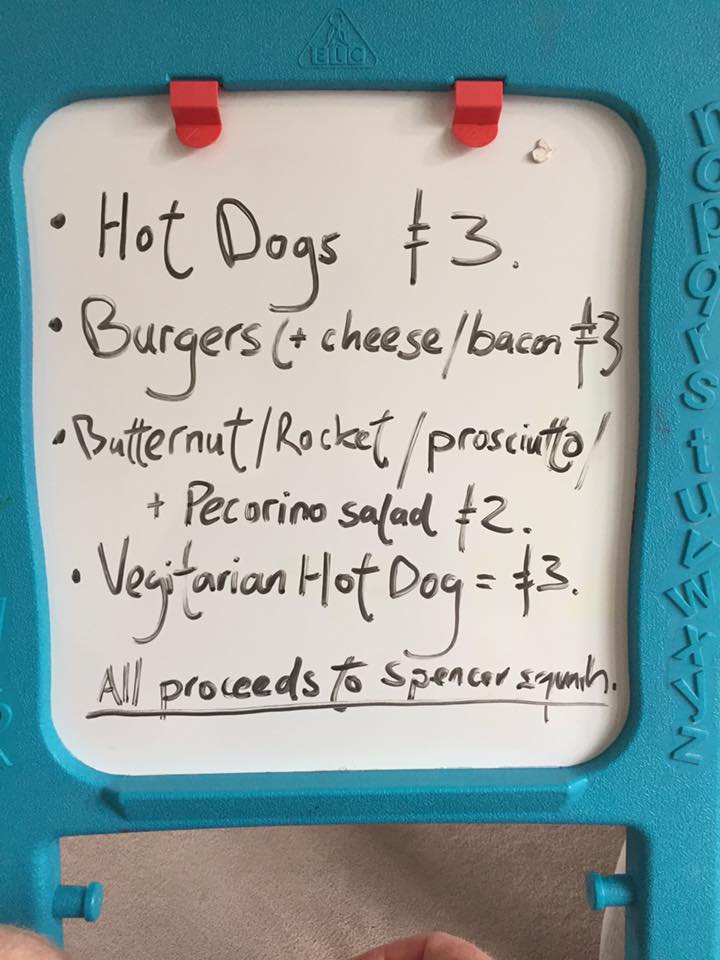 ELC
• Hot Dogs £3.
• Burgers (+ cheese/bacon £3
• Butternut/Rocket/prosciutto/
+ Pecorino salad £2.
• Vegitarian Hot Dog = £3.
All proceeds to Spencer
n o p q r s t u v w x y z